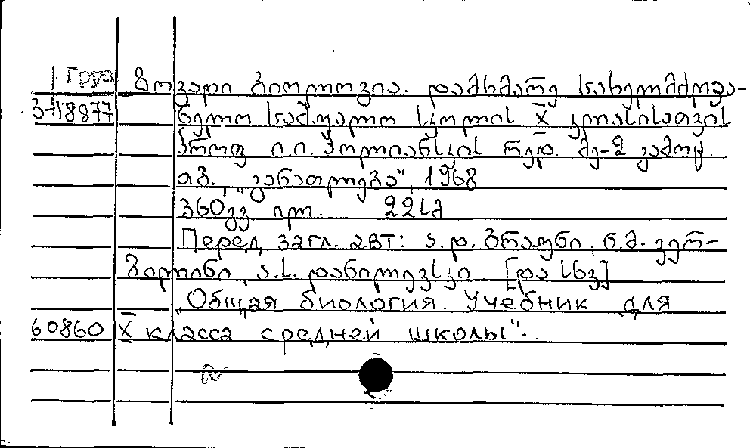 1 Груз ზოგადი ბიოლოგია. დამხმარე სახელმძღვა-
3-18877 ნელო საშუალო სკოლის X კლასისათვის
პროფ ი.ი. პოლიანსკის რედ. მე-2 გამოც.
თბ., „განათლება", 1968
360გვ ილ. 22სმ
Перед загл. авт: ა.დ. ბრაუნი. ნ.მ. ვერ-
ზილინი, ა.ს. დანილევსკი [და სხვ]
„Общая биология. Учебник для
60860 X класса средней школы".